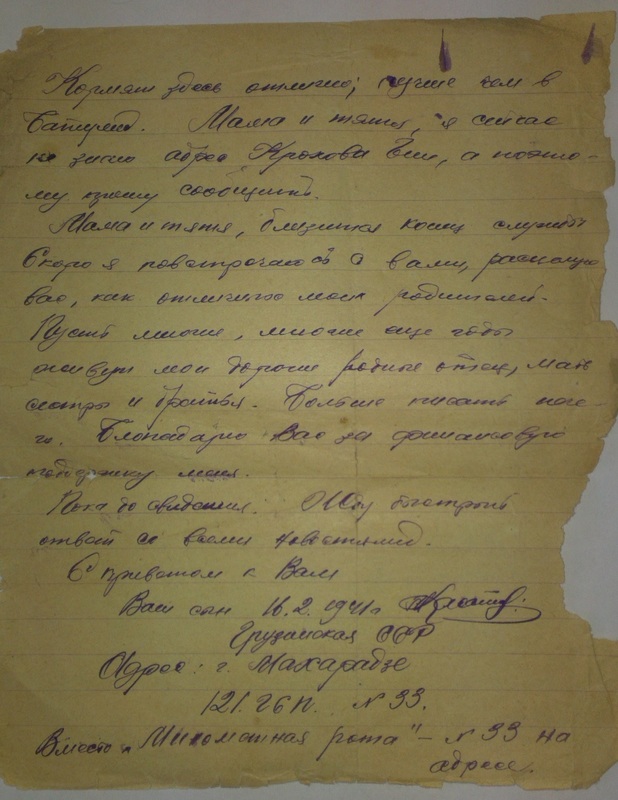 Кормят здесь отлично, лучше чем в
Батуми. Мама и тятя, я сейчас
не знаю адрес Крохова Ени, а поэто-
му прошу сообщить.
Мама и тятя, близится конец службы
Скоро я повстречаюсь с вами,
вас, как отлично моих родителей.
Пусть многие, многие еще годы
живут мои дорогие родные отец, мать
сестры и братья. Больше писать нече-
го. Благодарю Вас за финансовую
поддержку меня.
Пока до свидания. Жду быстрый
ответ со всеми новостями.
С приветом к Вам
Ваш сын 16.2.1941г
Грузинская ССР
Адрес: г. Махарадзе
121. Г6П. N 33.
Вместо „Минометная рота" – N 33 на
адресе.